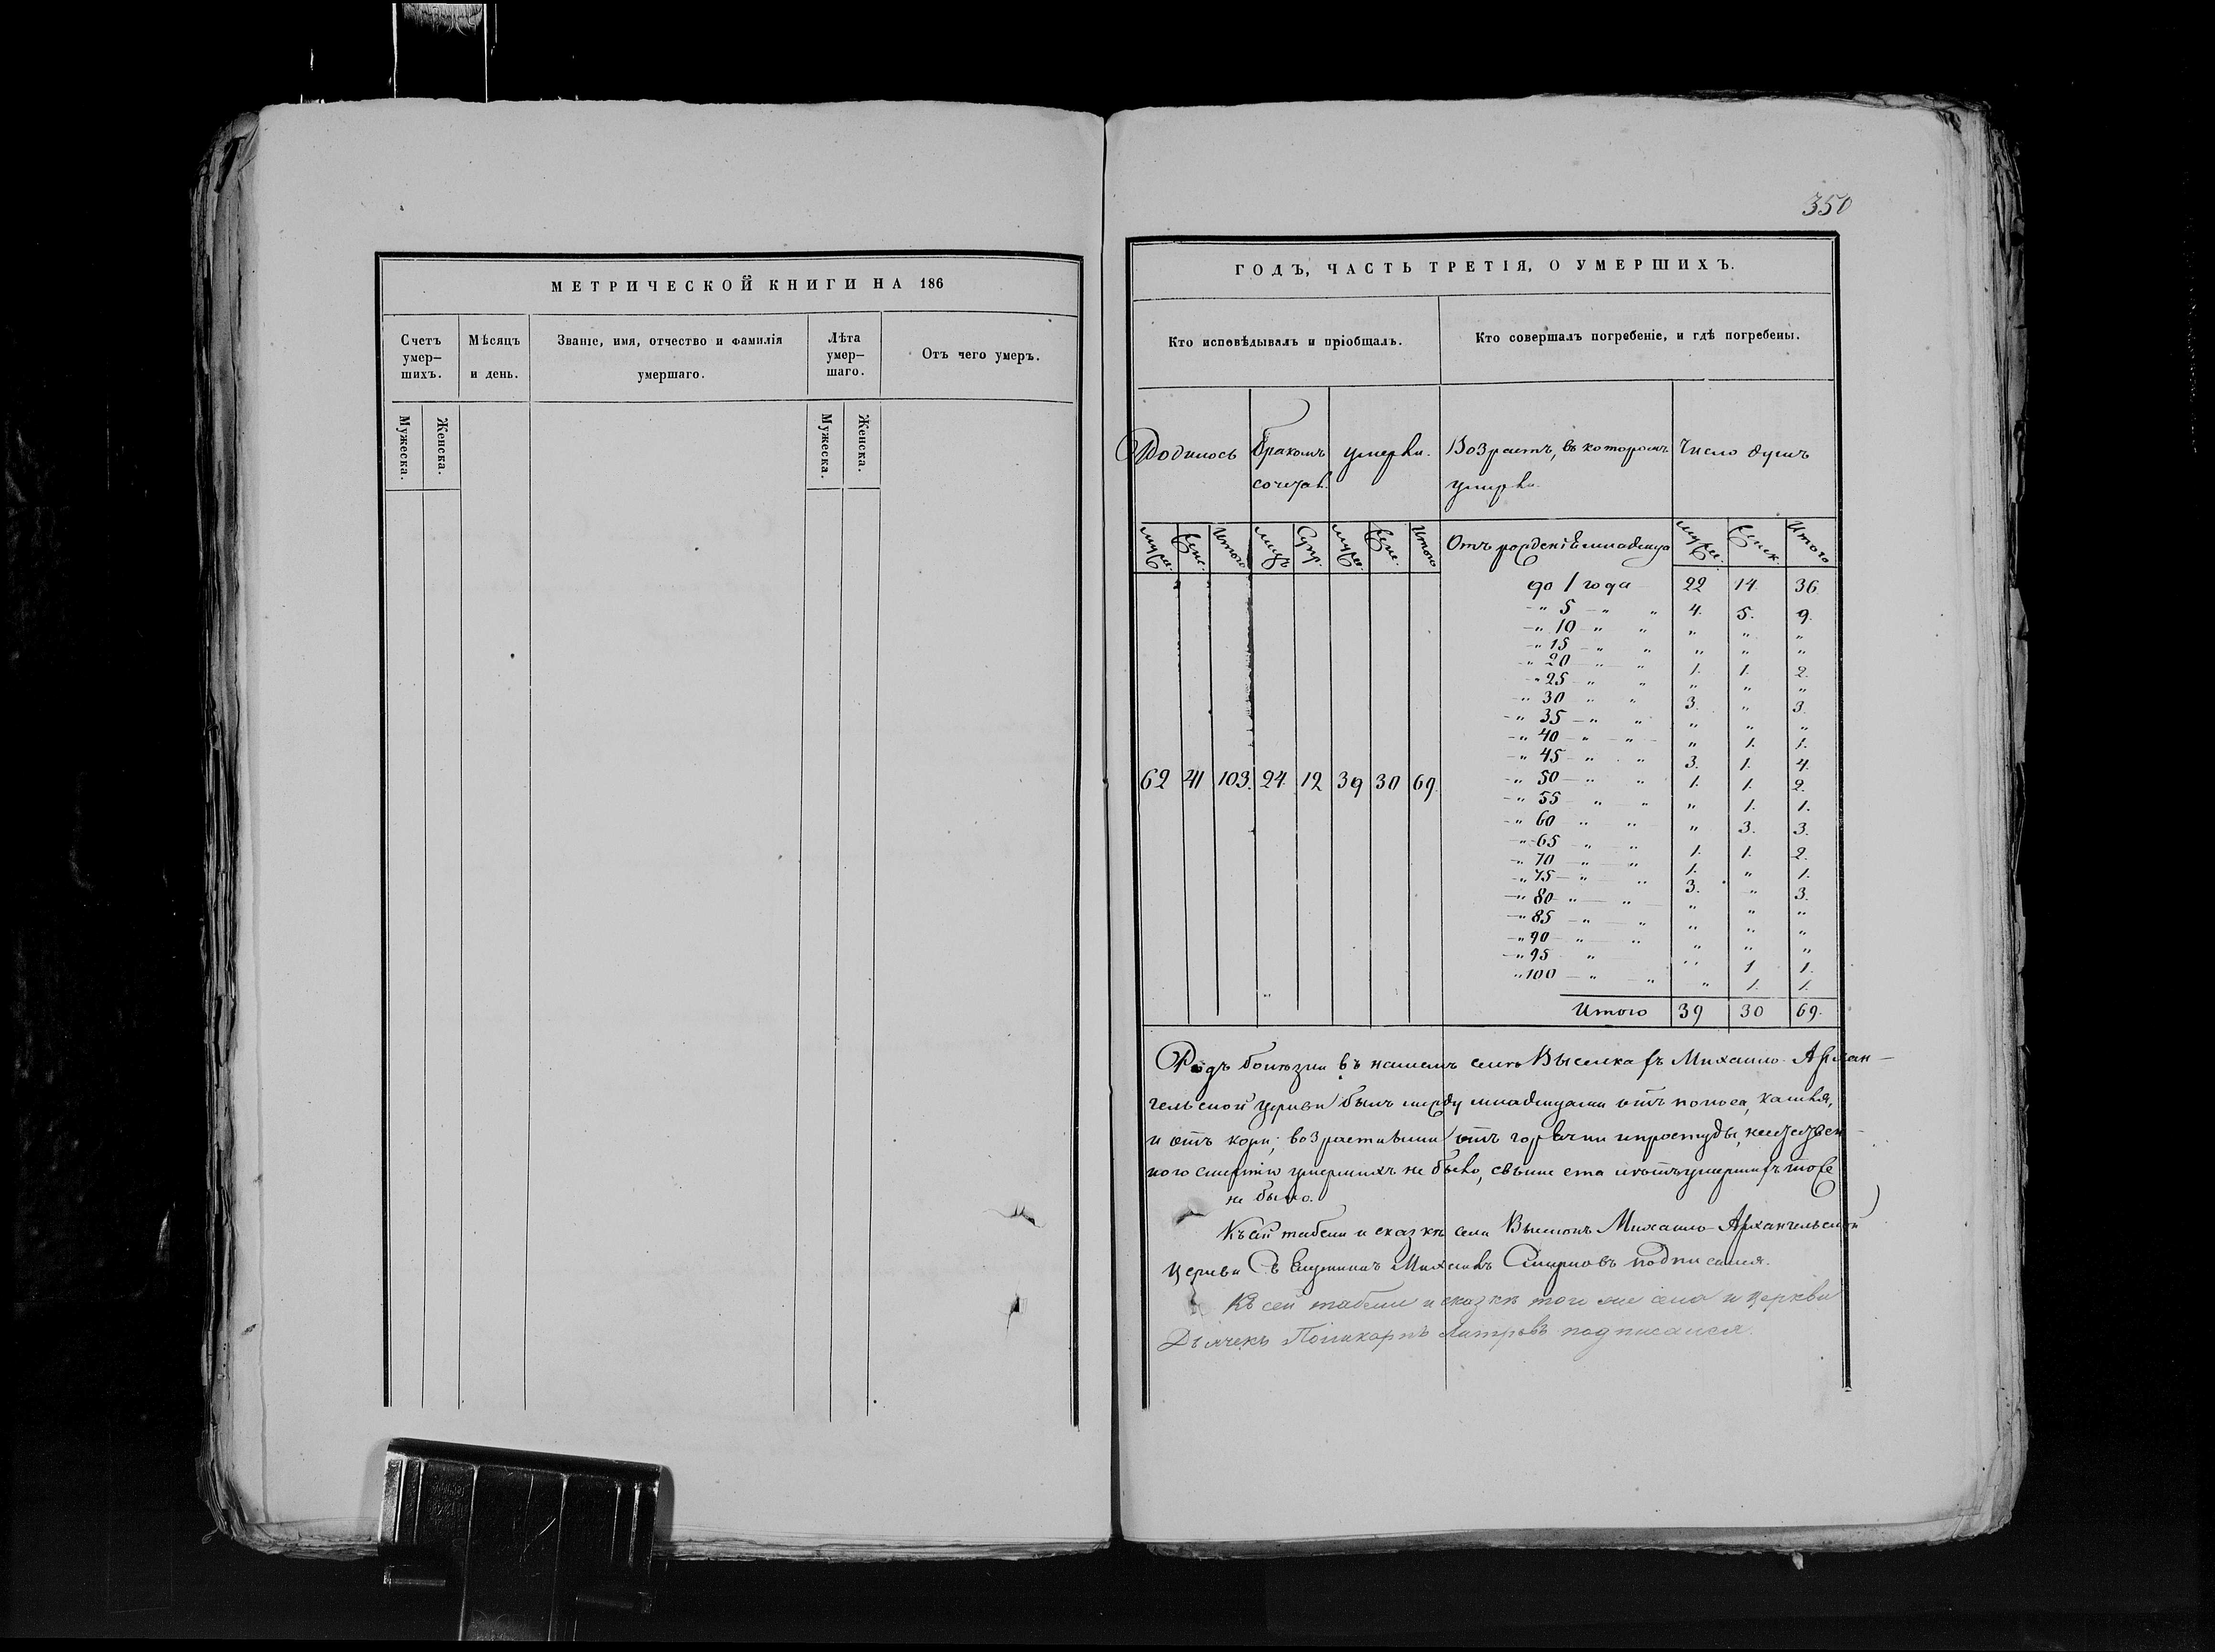 350
МЕТРИЧЕСКОЙ КНИГИ НА 186
Счетъ умер-шихъ.
Мѣсяцъ и день.
Званіе, имя, отчество и фамилія умершаго.
Лѣта умер-шаго.
Отъ чего умеръ.
Мужеска.
Женска.
Мужеска.
Женска.
ГОДЪ, ЧАСТЬ ТРЕТІЯ, О УМЕРШИХЪ.
Кто исповѣдывалъ и пріобщалъ.
Кто совершалъ погребеніе, и гдѣ погребены.
Родилось
Бракомъ сочетав.
умерли.
Возрастъ, въ которомъ умерли.
Число душъ
муж.
жен.
Итого
лицъ
Супр.
муж.
жен.
Итого
Отъ рожденія младенца
муж.
женск.
Итого
62 41 103. 24. 12 39 30 69.
до 1 года 22 14. 36.
-„ 5 -„ „ 4. 5. 9.
-„ 10 -„ „ „ „ „
-„ 15 -„ „ „ „ „
-„ 20 -„ „ 1. 1. 2.
-„ 25 -„ „ „ „ „
-„ 30 „ „ 3. „ 3.
-„ 35 -„ „ „ „ „
-„ 40 -„ „ „ 1. 1.
-„ 45 -„ „ 3. 1. 4.
-„ 50 -„ „ 1. 1. 2.
-„ 55 „ „ „ 1. 1.
-„ 60 „ „ „ 3. 3.
-„ 65 -„ „ 1. 1. 2.
-„ 70 -„ „ 1. „ 1.
-„ 75 -„ „ 3. „ 3.
-„ 80 -„ „ „ „ „
-„ 85 -„ „ „ „ „
-„ 90 -„ „ „ „ „
-„ 95 „ „ 1 1.
„ 100 -„ „ „ 1. 1.
Итого 39 30 69.
Родъ болѣзни въ нашемъ селѣ Выселкахъ Михаило-Архан-
гельской церкви былъ между младенцами отъ поноса, кашля,
и отъ кори; возрастными отъ горячки и простуды,
смертію умершихъ не было, свыше ста лѣтъ умершихъ тоже
не было.
Къ сей табели и сказкѣ села Михаило-Архангельской
церкви Смирновъ подписался.
Къ сей табели и сказкѣ того же села и церкви
Дьячекъ Поликарпъ подписался.